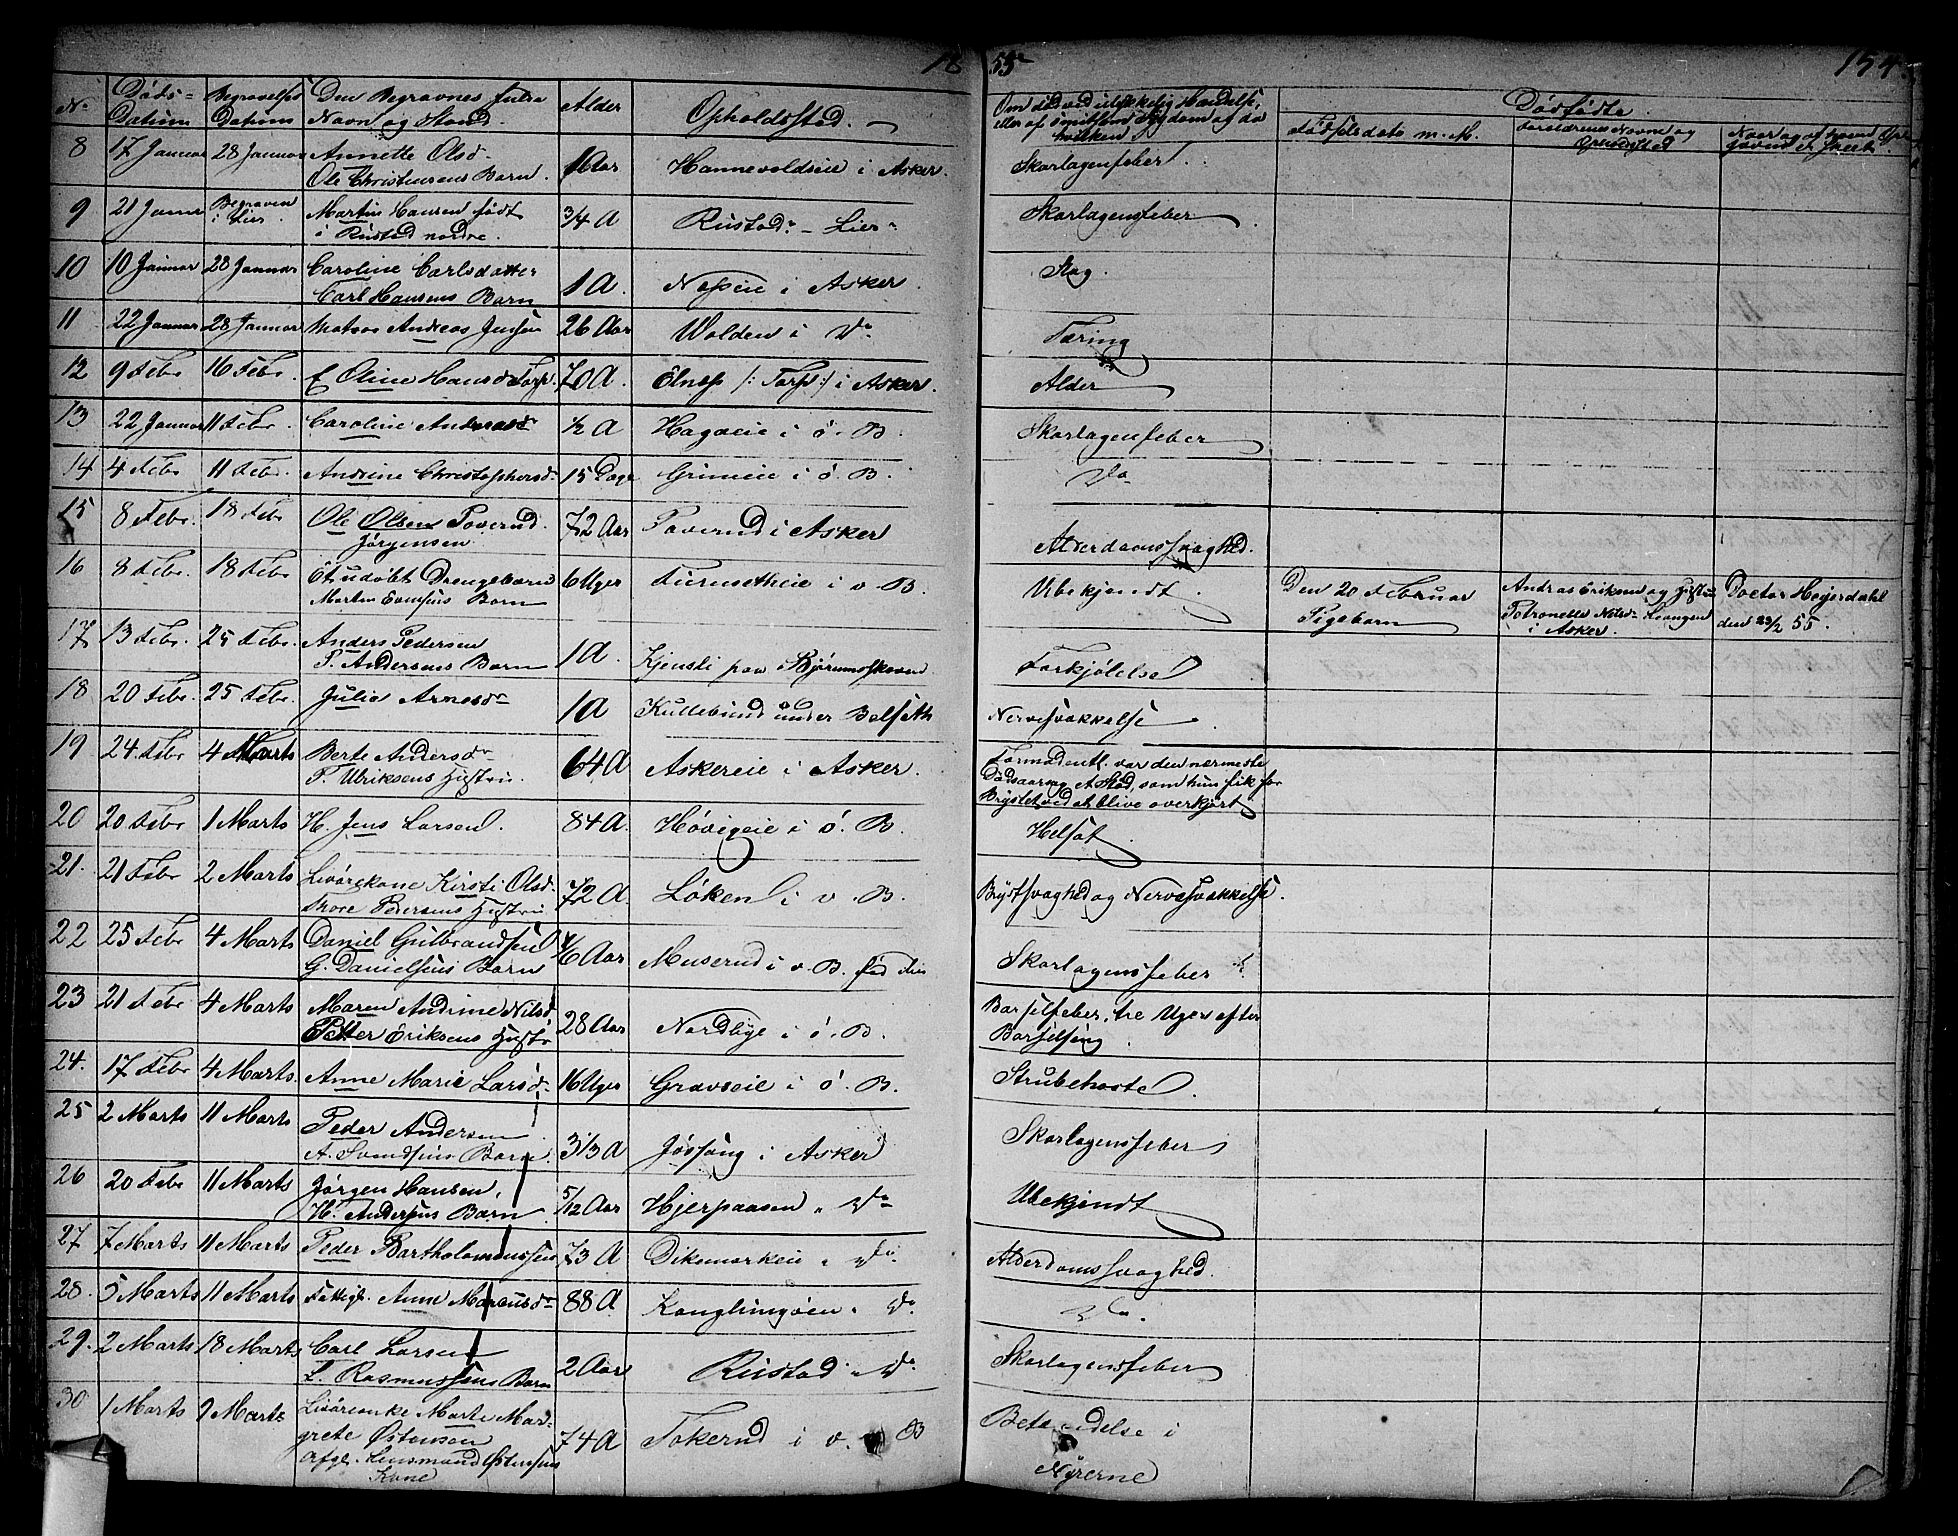 18 55 154
No Døds-Datum Begravelses Datum Den Begravnes fulde Navn og Stand Alder Opholdsstad. Om død ved ulykkelig Hændelse, eller af smitsom Sygdom af da hvilken Dødfødte.
Fødselsdato m. M. Forældrenes Navne og Opholdsted
8 17 Januar 28 Januar Annette Olsd. Ole Christensens Barn. Aar Hannevoldseie i Asker. Skarlagenfeber.
9 21 Januar Begraven i Lier Martin Hansen født i Rustad nordre. 3/4 A Rustad - Lier Skarlagensfeber
10 10 Januar 28 Januar Caroline Carlsdatter Carl Hansens Barn 1 A. Næseie i Asker. Slag.
11 22 Januar 28 Januar Matros Andreas Jensen 26 Aar Wolden i Do Tæring
12 9 Febr 16 Febr. E Oline Hansd Torp. 70 A. Elnes /: Torp :/ i Asker. Alder
13 22 Januar 11 Febr. Caroline Andersdr 1/2 A Hagaeie i ö. B. Skarlagensfeber
14 4 Febr 11 Febr. Andrine Christophersd. 15 Dage Grinieie i ö. B. Do
15 8 Febr. 18 Febr Ole Olsen Toverud. Jørgensen 72 Aar Toverud i Asker Alderdomssvaghed.
16 8 Febr. 18 Febr Et udøbt Drengebarn Morten Evensens Barn 6 Uger Furusetheie i v B. Ubekjendt. Den 20 Februar Pigebarn Andreas Eriksen og Hustru Petronelle Nilsdr Levangen i Asker. Doctor Heyerdahl den 23/2 55.
17 13 Febr. 25 Febr. Anders Pedersen P. Andersens Barn 1 A. Kjensli paa Bjørumsskoven Forkjølelse
18 20 Febr. 25 Febr. Julia Arnesdr 1 A Kullebund under Belseth Nervesvækkelse
19 24 Febr. 4 Marts Berte Andersdr P. Ulriksens Hustru. 64 A Askereie i Asker. Formodentl. var den nærmeste Dødsaarsag et Stød, som hun fik for Brystet ved at blive overkjørt
20 20 Febr 1 Marts H. Jens Larsen. 84 A. Høvigeie i ö. B. Helsot
21. 21 Febr 2 Marts Livørekone Kirsti Olsd. Thore Pedersens Hustru 72 A. Løken i v. B. Brystsvaghed og Nervesvækkelse.
22 25 Febr 4 Marts Daniel Gulbrandsen G. Danielsens Barn 1/6 Aar Muserud i v. B. Skarlagensfeber
23 21 Febr 4 Marts Maren Andrine Nilsd Petter Eriksens Hustr 28 Aar Nordbye i ö. B. Barselfeber, tre Uger efter Barselseng.
24. 17 Febr 4 Marts. Anne Marie Larsd. 16 Uger Gravseie i ö. B. Strubehoste.
25 2 Marts 11 Marts Peder Andersen A. Svendsens Barn. 3 1/3 A Jøssong i Asker Skarlagensfeber
26 20 Febr 11 Marts Jørgen Hansen. H. Andersens Barn. 5/12 Aar Hjerpaasen " Do Ubekjendt
27 7 Marts 11 Marts Peder Bartholomæussen 73 A Dikemarkeie " Do. Alderdomssvaghed.
28. 5 Marts 11 Marts Fattigl. Anne Marcusdr 88 A Konglungøen " Do. Do.
29. 2 Marts 18 Marts Carl Larsen L. Rasmussens Barn 2 Aar Rustad " Do Skarlagensfeber
30 1 Marts 9 Marts Livøreenke Marte Margrete Østensen afg. Lensmand Østensens Kone 74 A Tokerud i v. B Betændelse i Nyrerne